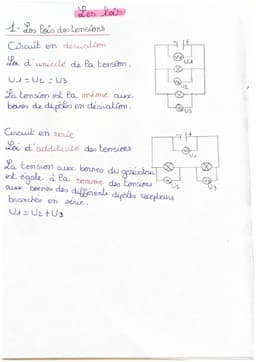 Les lois
1- Les lois des tensions
Circuit en dérivation
Loi d'unicité de la tension.
U1 = U2 = U3
La tension est la même aux
bornes de dipôles en dérivation.
U1
U2
U3
Circuit en série
Loi d'additivité des tensions
La tension aux bornes du générateur
est égale à la somme des tensions
aux bornes des différents dipôles récepteurs
branchés en série.
U1 = U2 + U3
U1
U2
U3